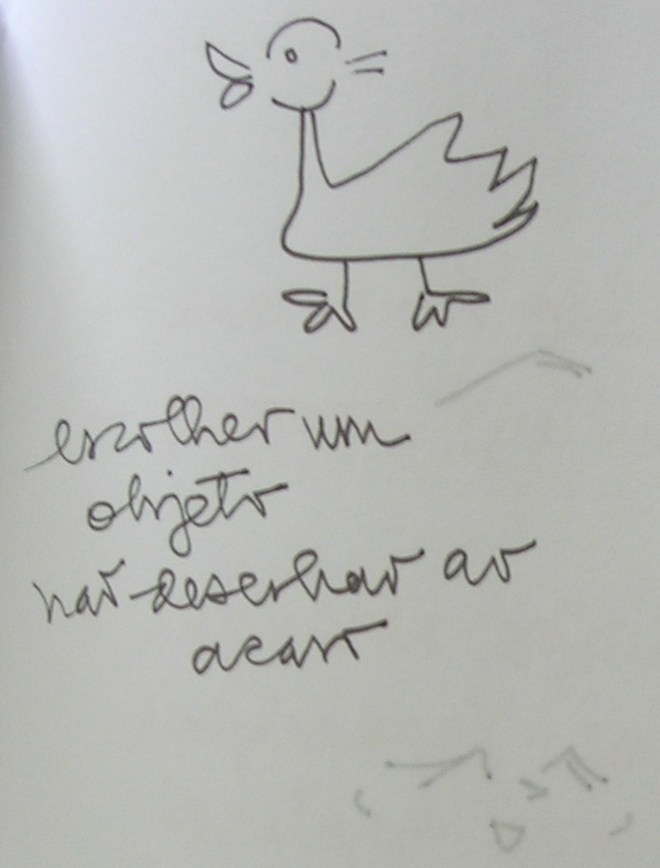 escolher um
objeto
não desenhar ao
acaso